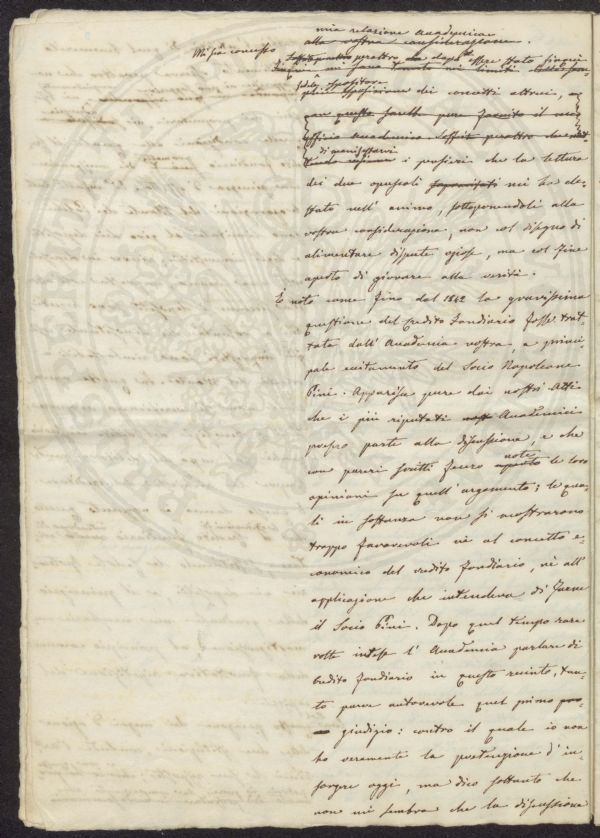 mia relazione Accademica
alla vostra considerazione.
Mi sia concesso
dopo essere stato
nei limiti
espositore
esposizione dei concetti altrui,
questo sarebbe pure
uffizio Accademico.
di manifestarvi
i pensieri che la lettura
dei due opuscoli mi ha de-
stato nell' animo, sottoponendoli alla
vostra considerazione, non col disegno di
alimentare dispute oziose, ma col fine
aperto di giovare alla verità.
È noto come fino dal 1842 la gravissima
questione del Credito Fondiario fosse trat-
tata dall' Accademia vostra, a princi-
pale eccitamento del Socio Napoleone
Pini. Apparisce pure dai nostri Atti
che i più reputati Accademici
presero parte alla discussione, e che
note
con pareri scritti fecero aperte le loro
opinioni su quell' argomento; le qua-
li in sostanza non si mostrarono
troppo favorevoli nè al concetto e-
conomico del credito fondiario, nè all'
applicazione che intendeva di farne
il Socio Pini. Dopo quel tempo rare
volte intese l' Accademia parlare di
Credito fondiario in questo recinto, tan-
to parve autorevole quel primo
giudizio: contro il quale io non
ho veramente la pretensione d' in-
sorgere oggi, ma dico soltanto che
non mi sembra che la discussione